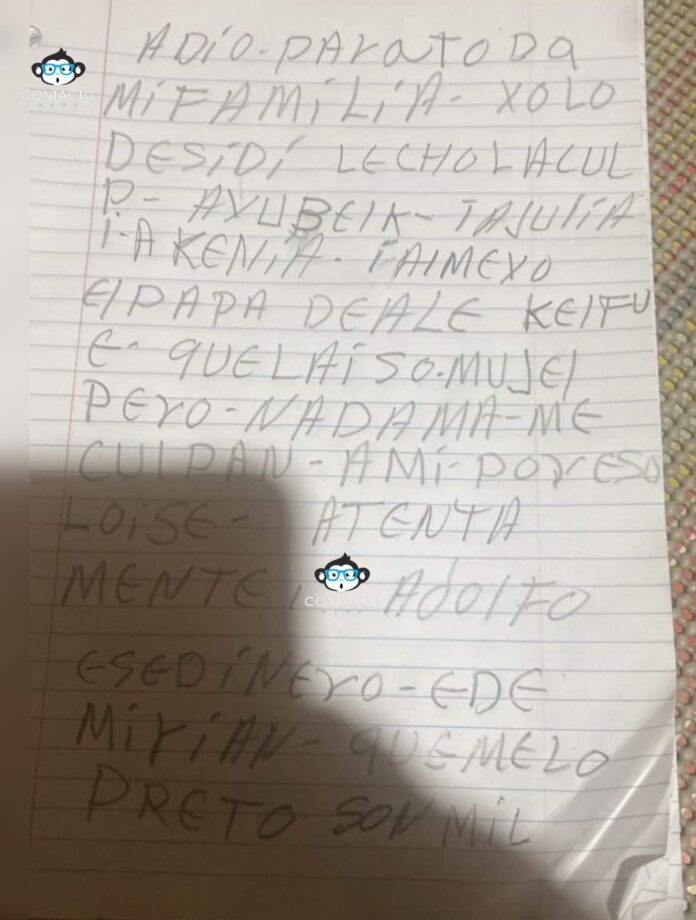 CONTACTO
ADiO-PARATODA
MiFAMiLiA-XOLO
DESiDi LECHOLACUL
P-AYUBEIK-IAJULIA
i-AKENiA-iAIMEXO
ElPAPA DEALE KEIFU
E-QUELAiSO-MUJEl
PERO-NADAMA-ME
CUlPAN-AMi-PORESO
LOiSE-ATENTA
MENTE ADOlFO
CONTACTO
ESEDiNERO-EDE
MiRiAN-QUEMELO
PRETO SON MiL